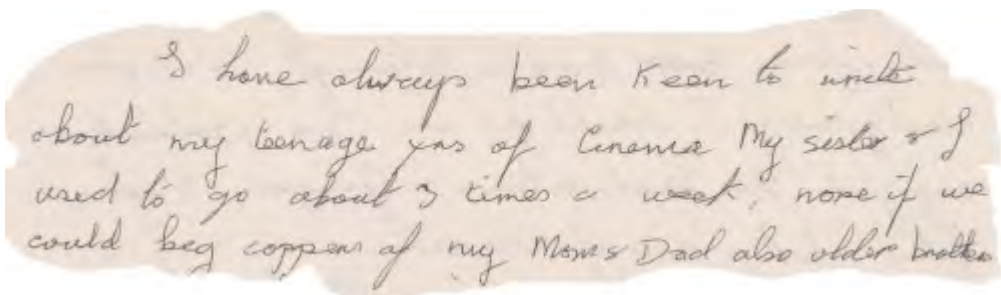 I have always been Keen to write
about my teenage yrs of Cinema My sister & I
used to go about 3 times a week, more if we
could beg coppers of my Mom & Dad also older brothers